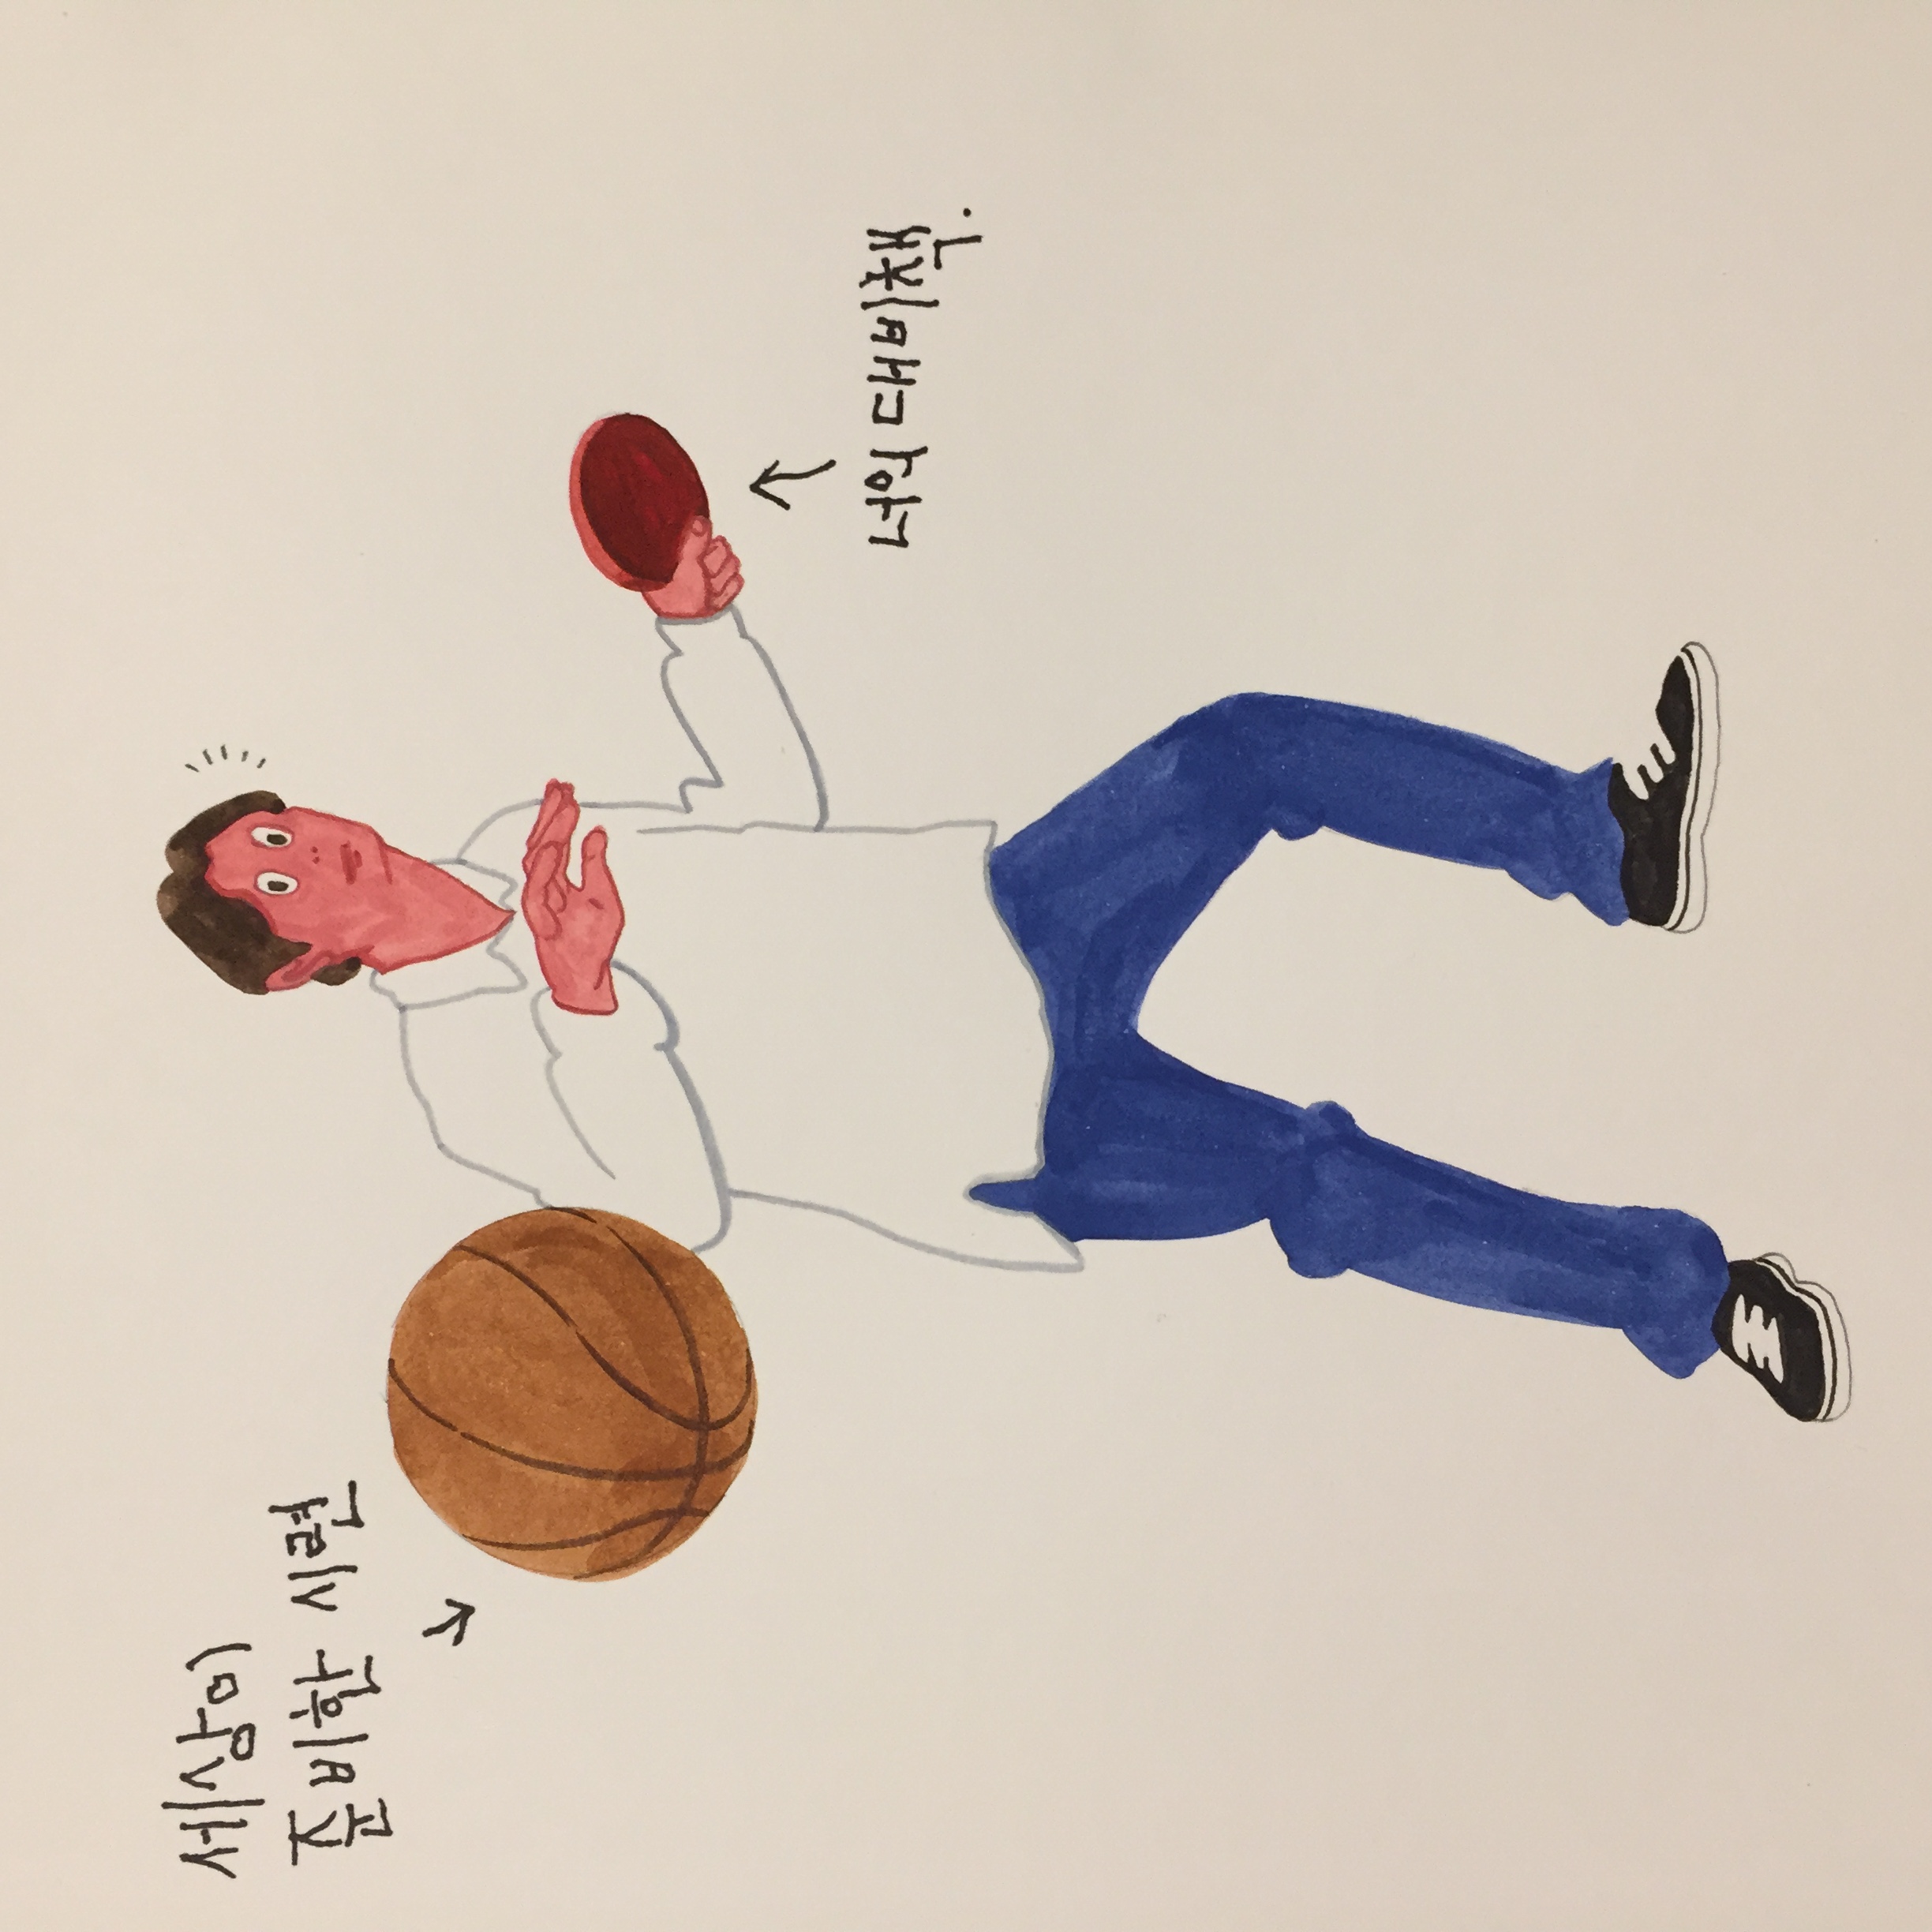 세상이
준비한 시련
너의 대비책.